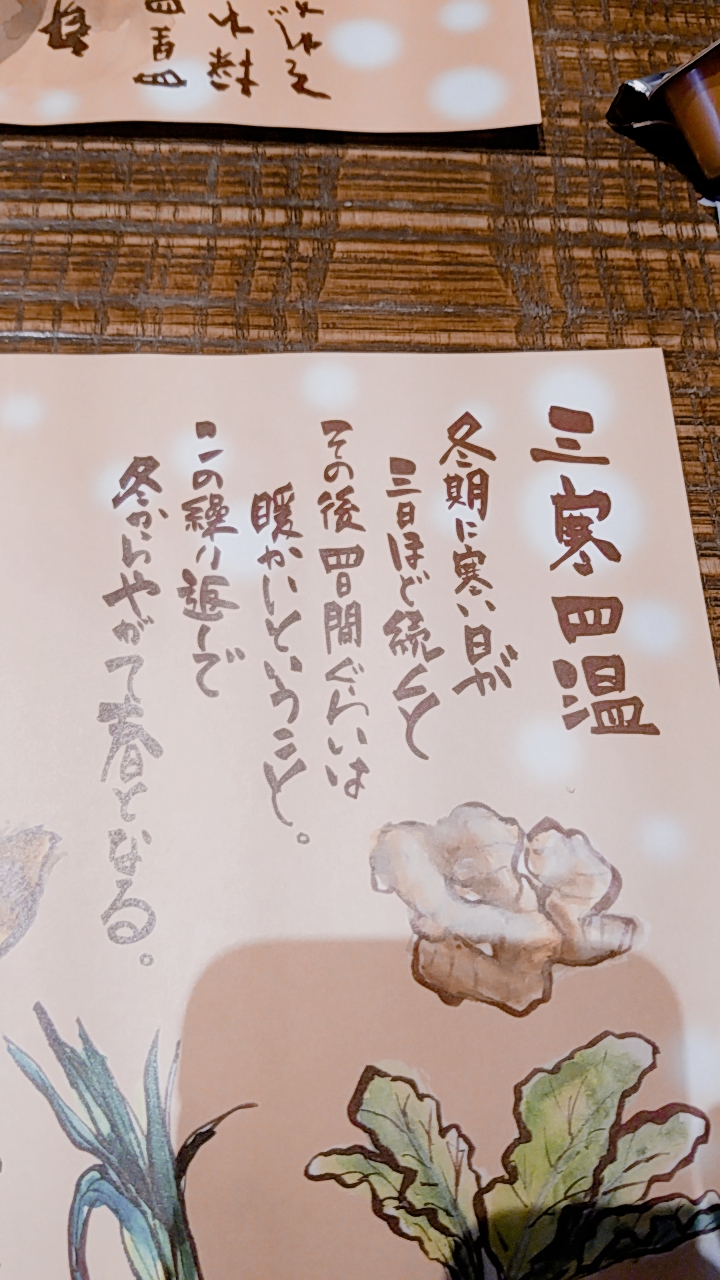 三寒四温
冬期に寒い日が
三日ほど続くと
その後四日間ぐらいは
暖かいということ。
この繰り返しで
冬からやがて春となる。